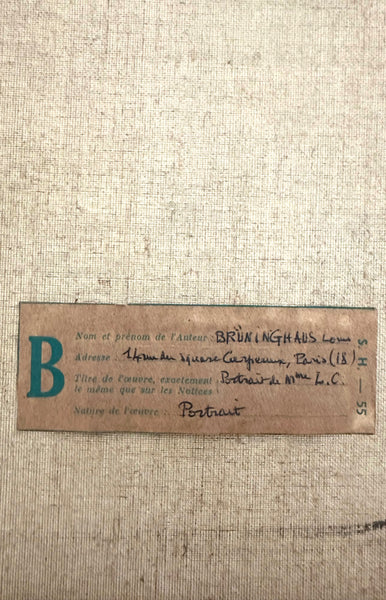 B
Nom et prénom de l'Auteur : BRÜNINGHAUS Louis
Adresse : 14 rue du square Carpeaux, Paris (18)
Titre de l'œuvre, exactement : Portrait de Mme L. C.
le même que sur les Notices :
Nature de l'œuvre : Portrait
S H — 55